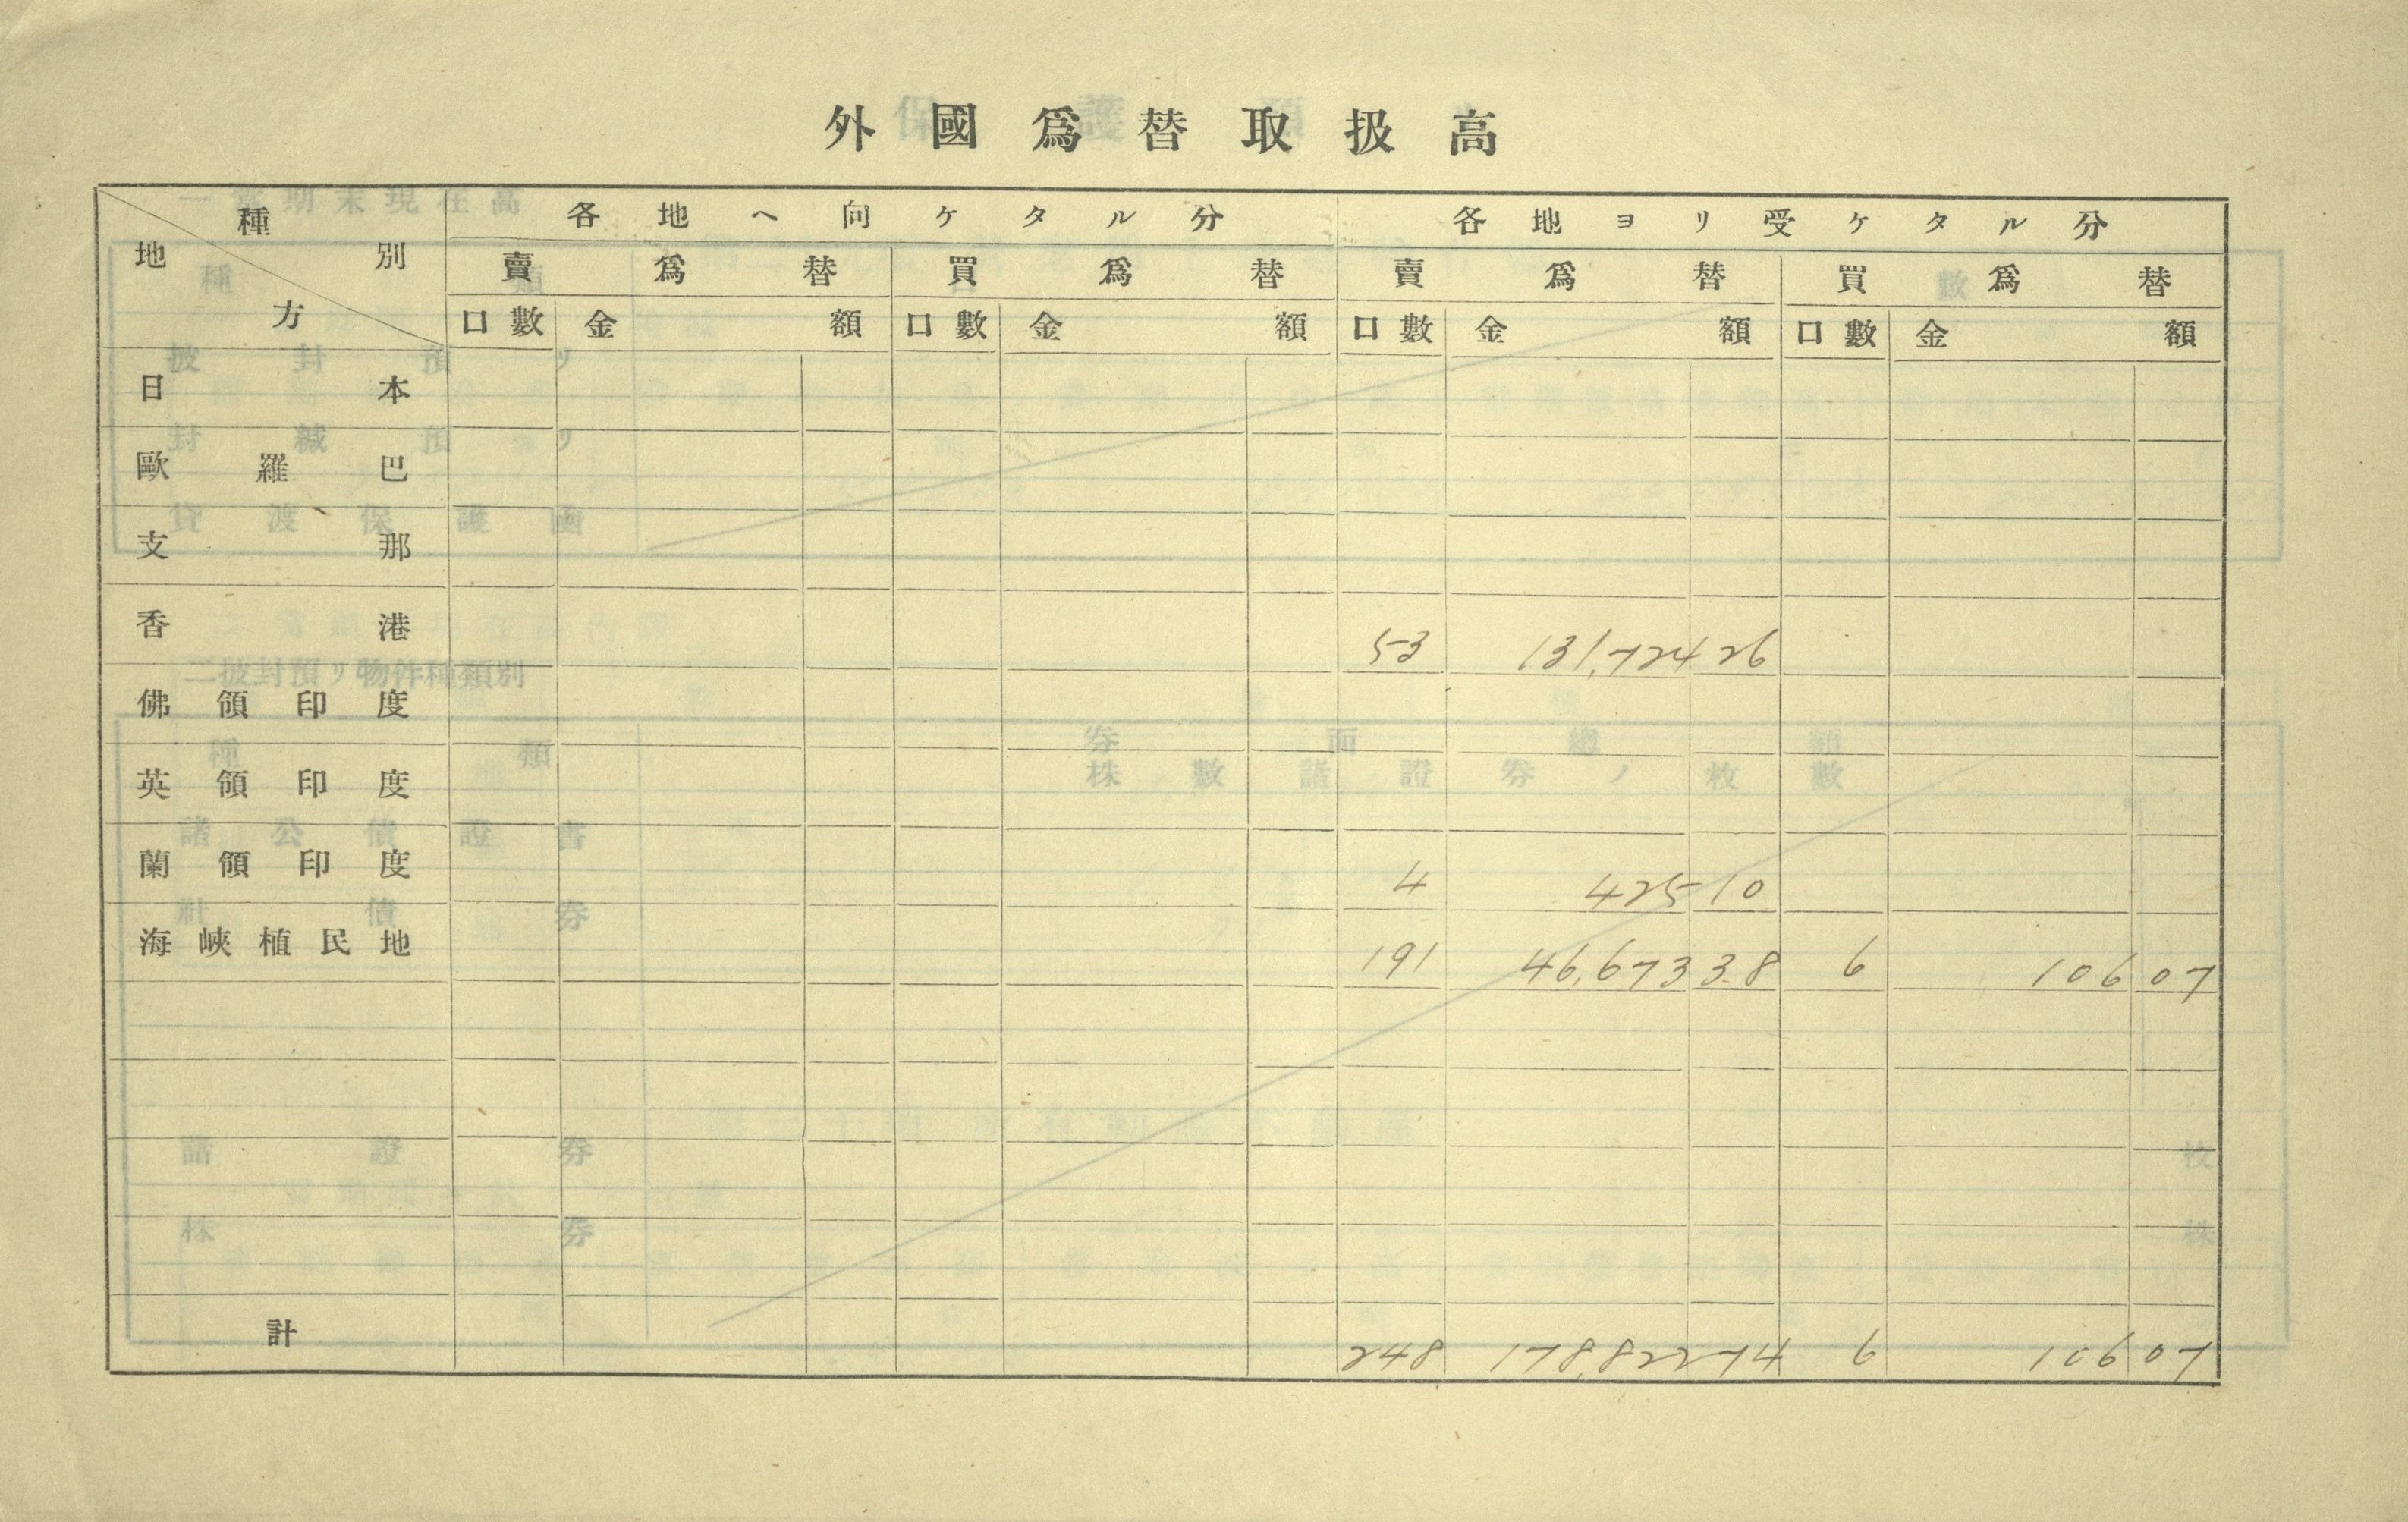 外國爲替取扱高
種別 地方 各地ヘ向ケタル分 各地ヨリ受ケタル分
賣爲替 買爲替 賣爲替 買爲替
口數 金額 口數 金額 口數 金額 口數 金額
日本
歐羅巴
支那
香港 53 131,724 26
佛領印度
英領印度
蘭領印度 4 425 10
海峽植民地 191 46,673 38 6 106 07
計 248 178,822 74 6 106 07